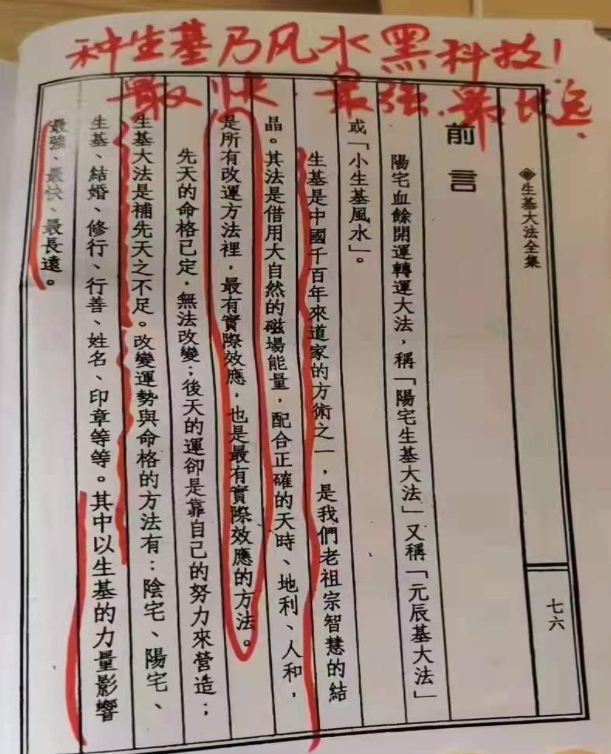 种生基乃风水黑科技!
最快.最强.最长远.
◈生基大法全集
七六
前言
陽宅血餘開運轉運大法，稱「陽宅生基大法」又稱「元辰基大法」
或「小生基風水」。
生基是中國千百年來道家的方術之一，是我們老祖宗智慧的結
晶。其法是借用大自然的磁場能量，配合正確的天時、地利、人和，
是所有改運方法裡，最有實際效應，也是最有實際效應的方法。
先天的命格已定，無法改變；後天的運卻是靠自己的努力來營造；
生基大法是補先天之不足。改變運勢與命格的方法有：陰宅、陽宅、
生基、結婚、修行、行善、姓名、印章等等。其中以生基的力量影響
最強、最快、最長遠。